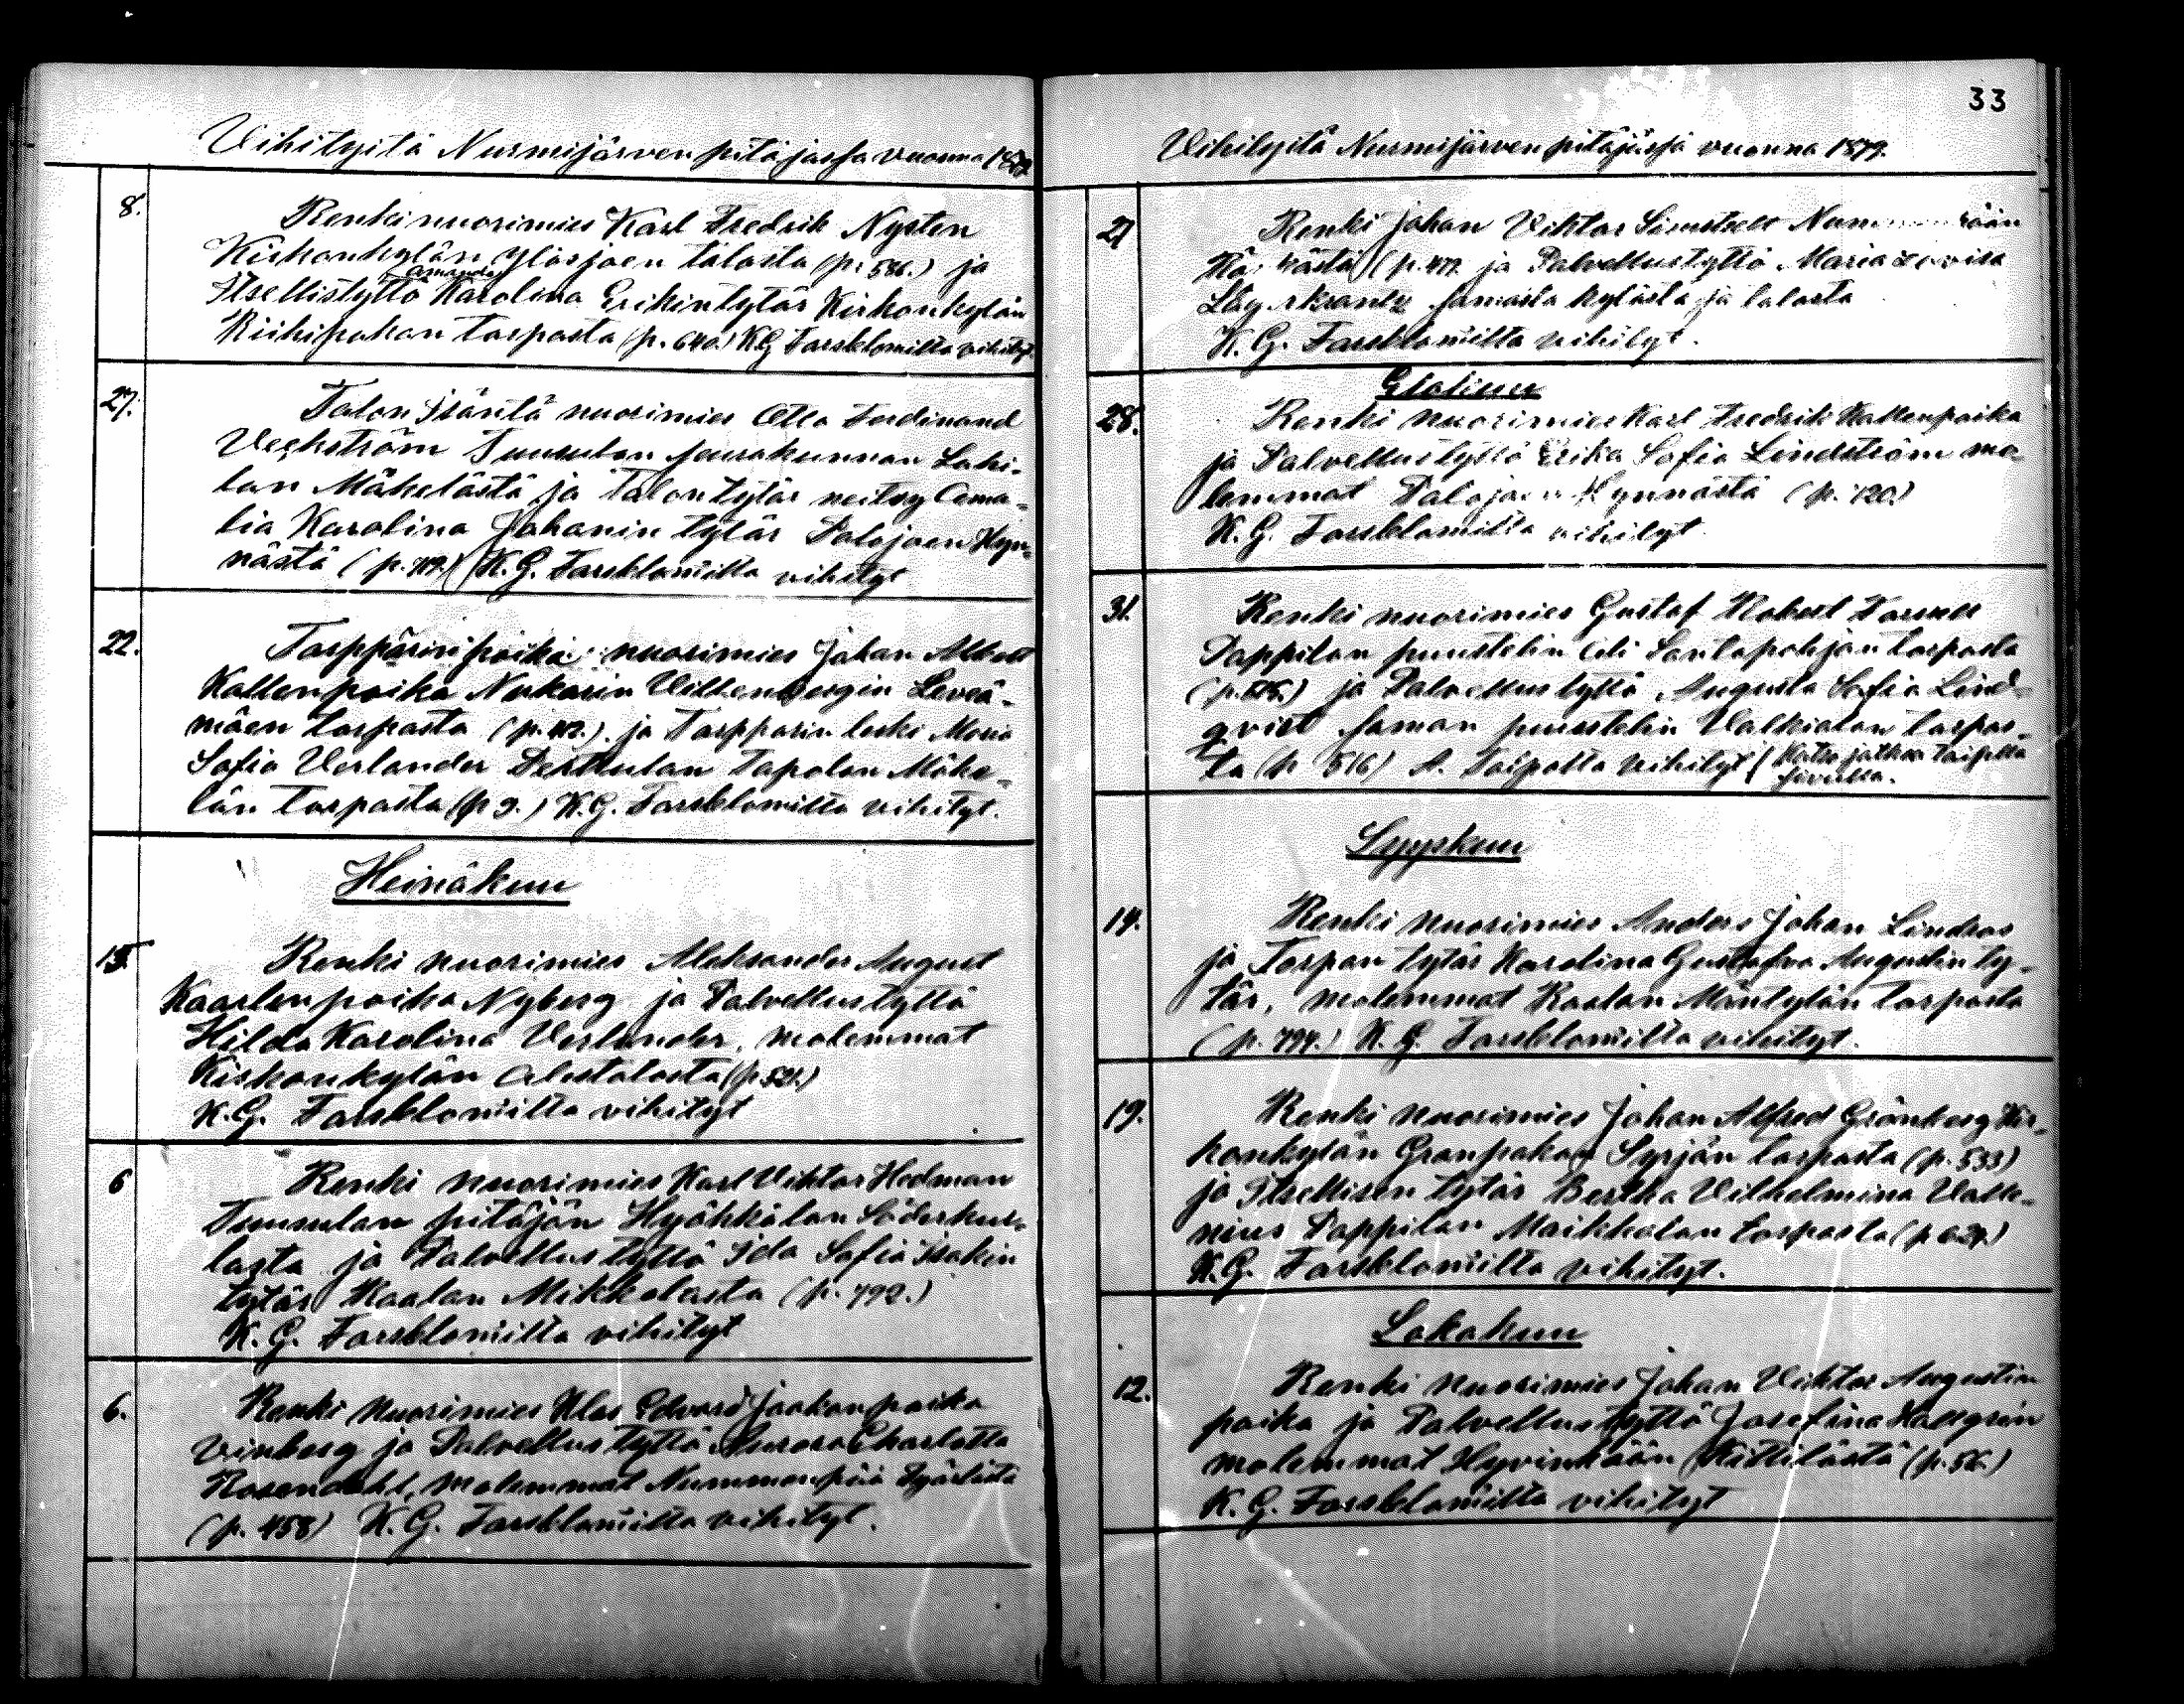 Vihityitä Nurmijärven pitäjässä vuonna 1879.
8.
Renki nuorimies Karl Fredrik Nysten
Kirkonkylän Ylösjoen talosta (p. 586.) ja
Amanda
Itsellistyttö Karolina Erikintytär Kirkonkylän
Riihipakan torpasta (p. 640.) K.G. Forsblomilta vihityt.
27.
Talon Isäntä nuorimies Otto Ferdinand
Veckström Tuusulan seurakunnan Lahe-
lan Mäkelästä ja Talon tytär neitsy Ama-
lia Karolina Johanin tytär Palojoen Hyn-
nästä (p. 119.) K.G. Forsblomilta vihityt
22.
Torpparin poika nuorimies Johan Albert
Kallenpoika Nukarin Villenbergin Leveä-
mäen torpasta (p. 412.) ja Torpparin leski Maria
Sofia Verlander Perttulan Tapolan Mäke-
län torpasta (p 9.) K.G. Forsblomilta vihityt.
Heinäkuu
13.
Renki nuorimies Aleksander August
Kaarlenpoika Nyberg ja Palvellustyttö
Hilda Karolina Verlander, molemmat
Kirkonkylän Alestalosta (p. 521.)
K.G. Forsblomilta vihityt
6
Renki nuorimies Karl Viktor Hedman
Tuusulan pitäjän Hyökkälän Söderkul-
lasta ja Palvellustyttö Ida Sofia Isakin
tytär Raalan Mikkolasta (p. 792.)
K.G. Forsblomilta vihityt
6.
Renki Nuorimies Klas Edvard Jaakonpoika
Vinberg ja Palvellustyttö Aurora Charlotta
Rosendahl, molemmat Nummenpää
(p. 458) K.G. Forsblomilta vihityt.
33
Vihityitä Nurmijärven pitäjässä vuonna 1879.
27
Renki Johan Viktor
(p. 477. ja Palvellustyttö Maria Lovisa
samasta kylästä ja talosta
K.G. Forsblomilta vihityt.
Elokuu
28.
Renki nuorimies Karl Fredrik Kallenpoika
ja Palvellustyttö Erika Sofia Lindström mo-
lemmat Palojoen Hynnästä (p. 120.)
K.G. Forsblomilta vihityt.
31.
Renki nuorimies Gustaf Robert Forsell
Pappilan puustelin Ali Santapohjan torpasta
ja Palvellustyttö Augusta Sofia Lind-
qvist saman puustelin Valkialan torpas-
ta (p 516) A. Taipolta vihityt (Katso jatkoa toisella
sivulla.
Syyskuu
14.
Renki nuorimies Anders Johan Lindros
ja Torpan tytär Karolina Gustafva Augustin ty-
tär, molemmat Raalan Mäntylän torpasta
(p. 794.) K.G. Forsblomilta vihityt.
19.
Renki nuorimies Johan Alfred Grönberg Kir-
konkylän Granpakan Syrjän torpasta (p. 533)
ja Itsellisen tytär Bertha Vilhelmina Valle-
nius Pappilan Maikkalan torpasta (p 624.)
K.G. Forsblomilta vihityt.
Lokakuu
12.
Renki Nuorimies Johan Viktor Augustin
poika ja Palvellustyttö Josefina Hallgrén
molemmat Hyvinkään Kittilästä (p. 56.)
K.G. Forsblomilta vihityt